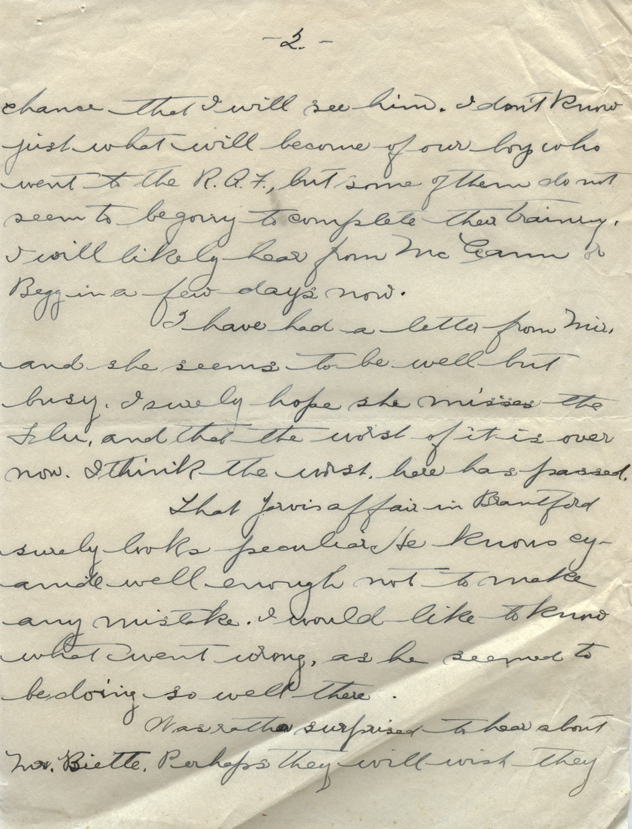 - 2. -
chance that I will see him. I don't know
just what will become of our boys who
went to the R.A.F., but some of them do not
seem to be going to complete their training.
I will likely hear from McCann or
Begg in a few days now.
I have had a letter from
and she seems to be well but
busy. I surely hope she misses the
Flu, and that the worst of it is over
now. I think the worst here has passed.
That Jarvis affair in Brantford
surely looks peculiar. He knows cy-
anide well enough not to make
any mistake. I would like to know
what went wrong, as he seemed to
be doing so well there.
Was rather surprised to hear about
Biette. Perhaps they will wish they